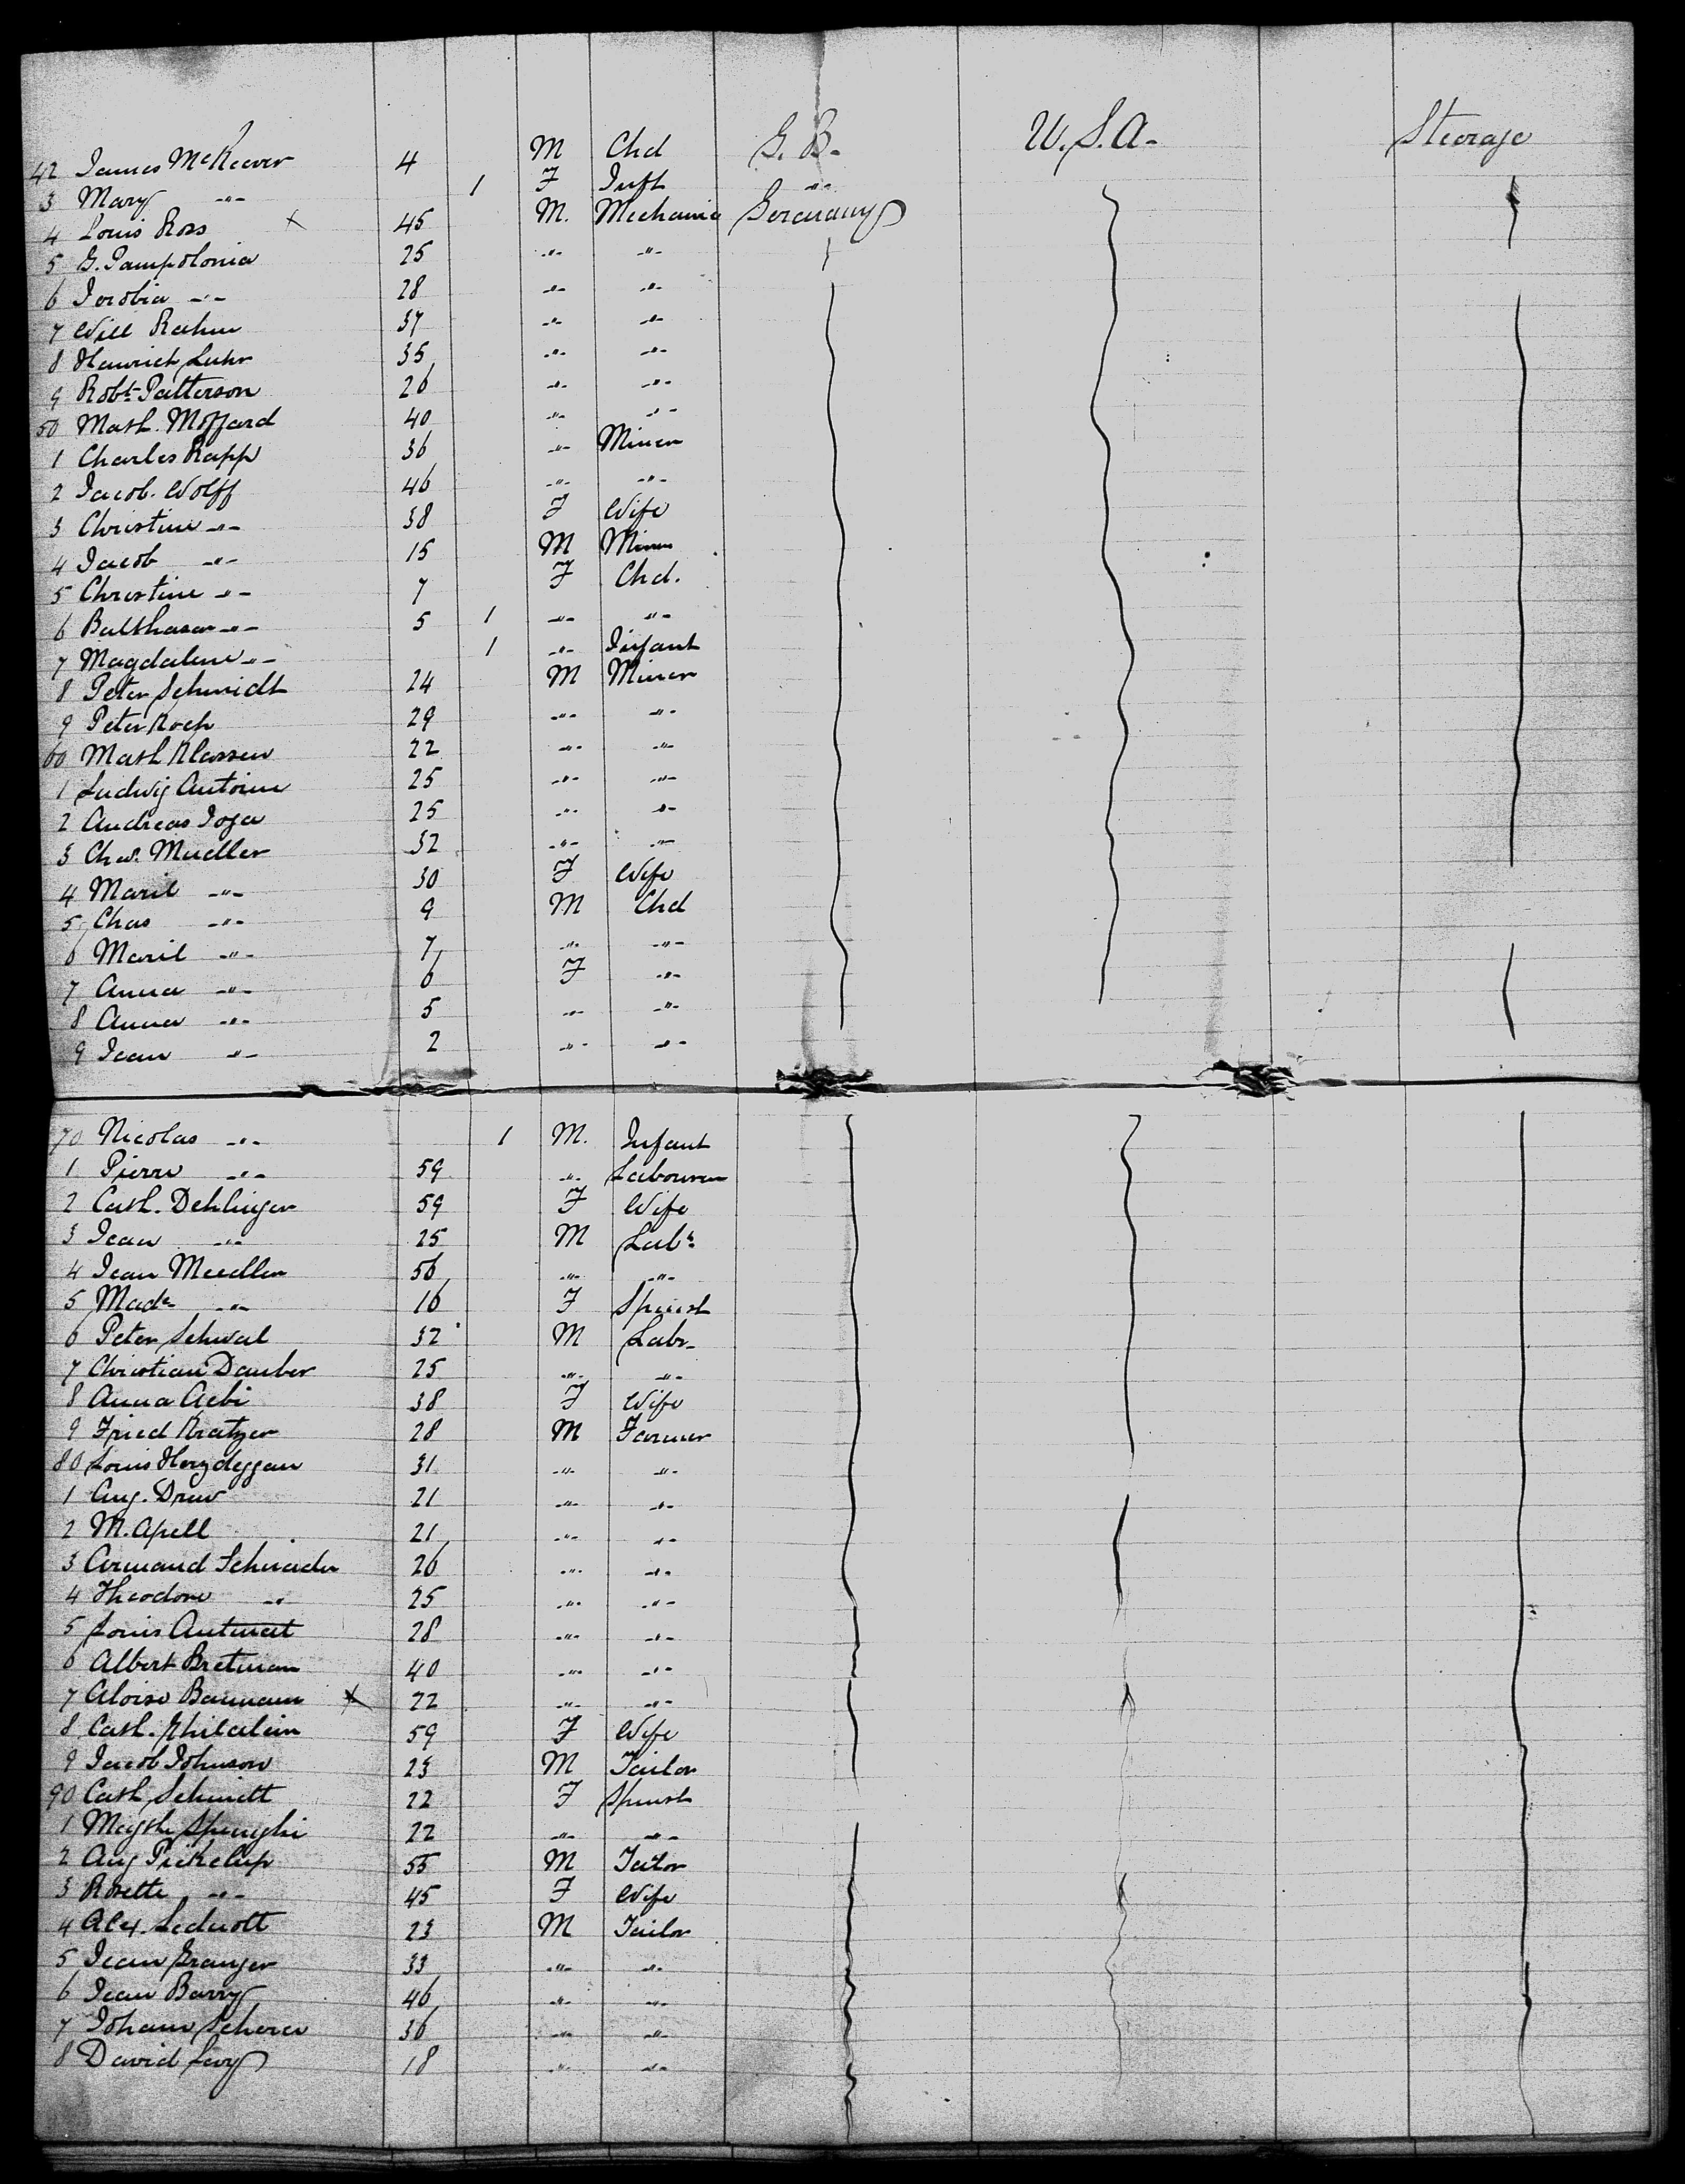 42 James McKeever 4 M Chd G. B. U. S. A. Steerage
3 Mary -"- 1 F Inft -"-
4 Louis Ross x 45 M. Mechanic Germany
5 G. Pampolonia 25 -"- -"-
6 Jerobia -"- 28 -"- -"-
7 Will Rahm 37 -"- -"-
8 Heinrich Luhr 35 -"- -"-
9 Robt Patterson 26 -"- -"-
50 Math. Moffard 40 -"- -"-
1 Charles Rapp 36 -"- Miner
2 Jacob Wolff 46 -"- -"-
3 Christine -"- 38 F Wife
4 Jacob -"- 15 M Miner
5 Christine -"- 7 F Chd.
6 Balthasar -"- 5 1 -"- -"-
7 Magdalene -"- 1 -"- Infant
8 Peter Schmidt 24 M Miner
9 Peter Koch 29 -"- -"-
60 Math Klassen 22 -"- -"-
1 Ludwig Antoine 25 -"- -"-
2 Andreas 25 -"- -"-
3 Mueller 32 -"- -"-
4 Maril -"- 30 F Wife
5 Chas -"- 9 M Chd
6 Maril -"- 7 -"- -"-
7 Anna -"- 6 F -"-
8 Anna -"- 5 -"- -"-
9 Jean -"- 2 -"- -"-
70 Nicolas -"- 1 M. Infant
1 Pierre -"- 59 -"- Labourer
2 Cath. Dehlinger 59 F Wife
3 Jean -"- 25 M Labr
4 Jean Mueller 56 -"- -"-
5 Made -"- 16 F Spinst
6 Peter Schwal 32 M Labr
7 Christian Dauber 25 -"- -"-
8 Anna Aebi 38 F Wife
9 Fried Kratzer 28 M Farmer
80 Louis 31 -"- -"-
1 Aug. Drew 21 -"- -"-
2 M. Apell 21 -"- -"-
3 Armand Schneider 26 -"- -"-
4 Theodore -"- 25 -"- -"-
5 Louis 28 -"- -"-
6 Albert Bretman 40 -"- -"-
7 Aloise Baumann x 22 -"- -"-
8 Cath. 59 F Wife
9 Jacob Johnson 23 M Tailor
90 Cath Schmitt 22 F Spinst
1 22 -"- -"-
2 Aug 55 M Tailor
3 Rosette -"- 45 F Wife
4 Alex. 23 M Tailor
5 Jean Granger 33 -"- -"-
6 Jean Barry 46 -"- -"-
7 Johann Scherer 36 -"- -"-
8 David Levy 18 -"- -"-